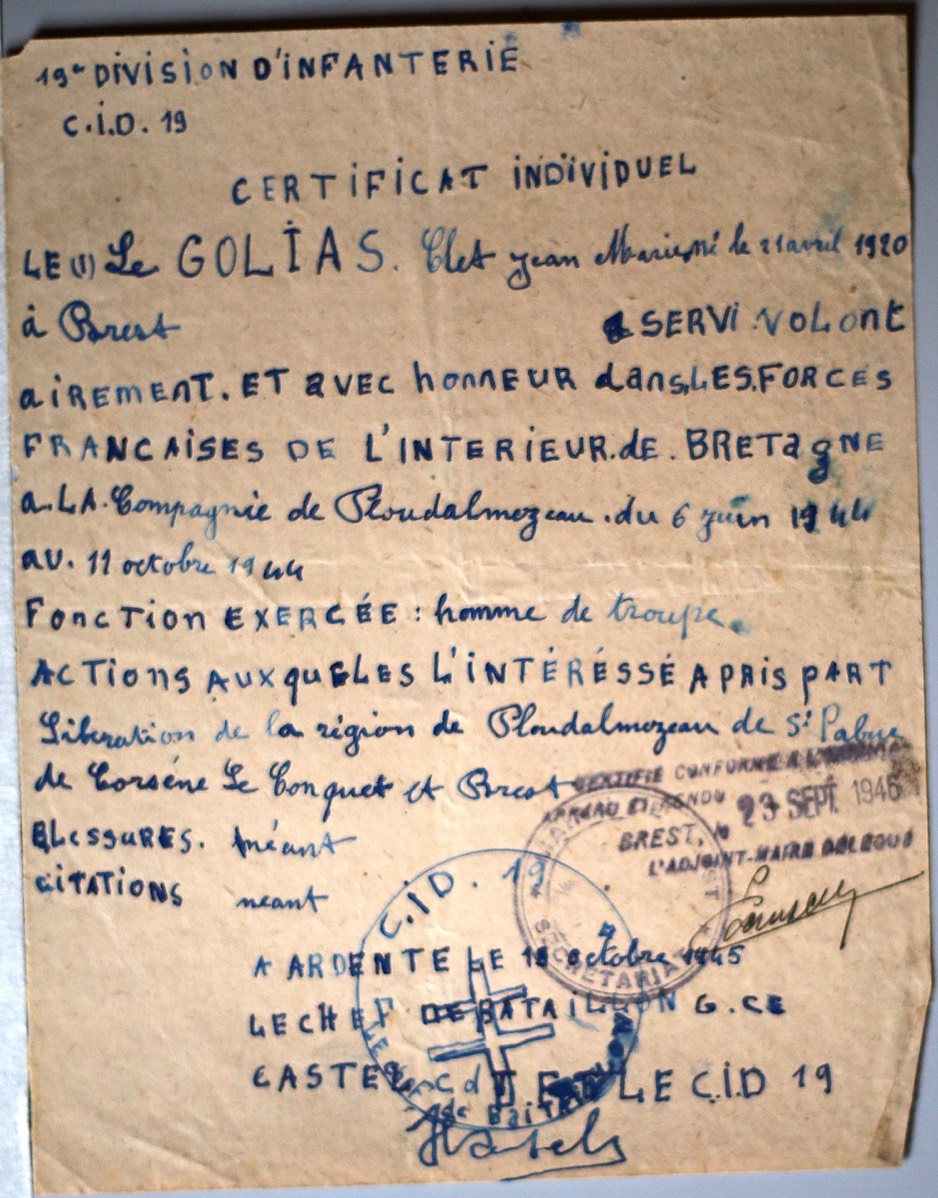 19e DIVISION D'INFANTERIE
C.I.D. 19
CERTIFICAT INDIVIDUEL
LE (1) Le GOLIAS. Clet Jean Marie, né le 21 avril 1920
à Brest a SERVI. VOLONT
AIREMENT. ET AVEC HONNEUR dans, LES. FORCES
FRANCAISES DE L'INTERIEUR. de. BRETAGNE
a. LA. Compagnie de Ploudalmozeau. du 6 juin 1944
AU. 11 octobre 1944
FONCTION EXERCÉE : homme de troupe.
ACTIONS AUXQUELES L'INTÉRÉSSÉ A PRIS PART
Libération de la région de Ploudalmozeau de St Pabu
de Corséne Le Conquet et Brest
BLESSURES. néant
CITATIONS néant
CERTIFIE CONFORME A
BREST, le 23 SEPT. 1946
L'ADJOINT-MAIRE DELEGUE
SECRETARIAT
C.I.D. 19
A ARDENTE LE 18 octobre 1945
LE CHEF DE BATAILLON G. CE
CASTEL C d T LE C.I.D 19